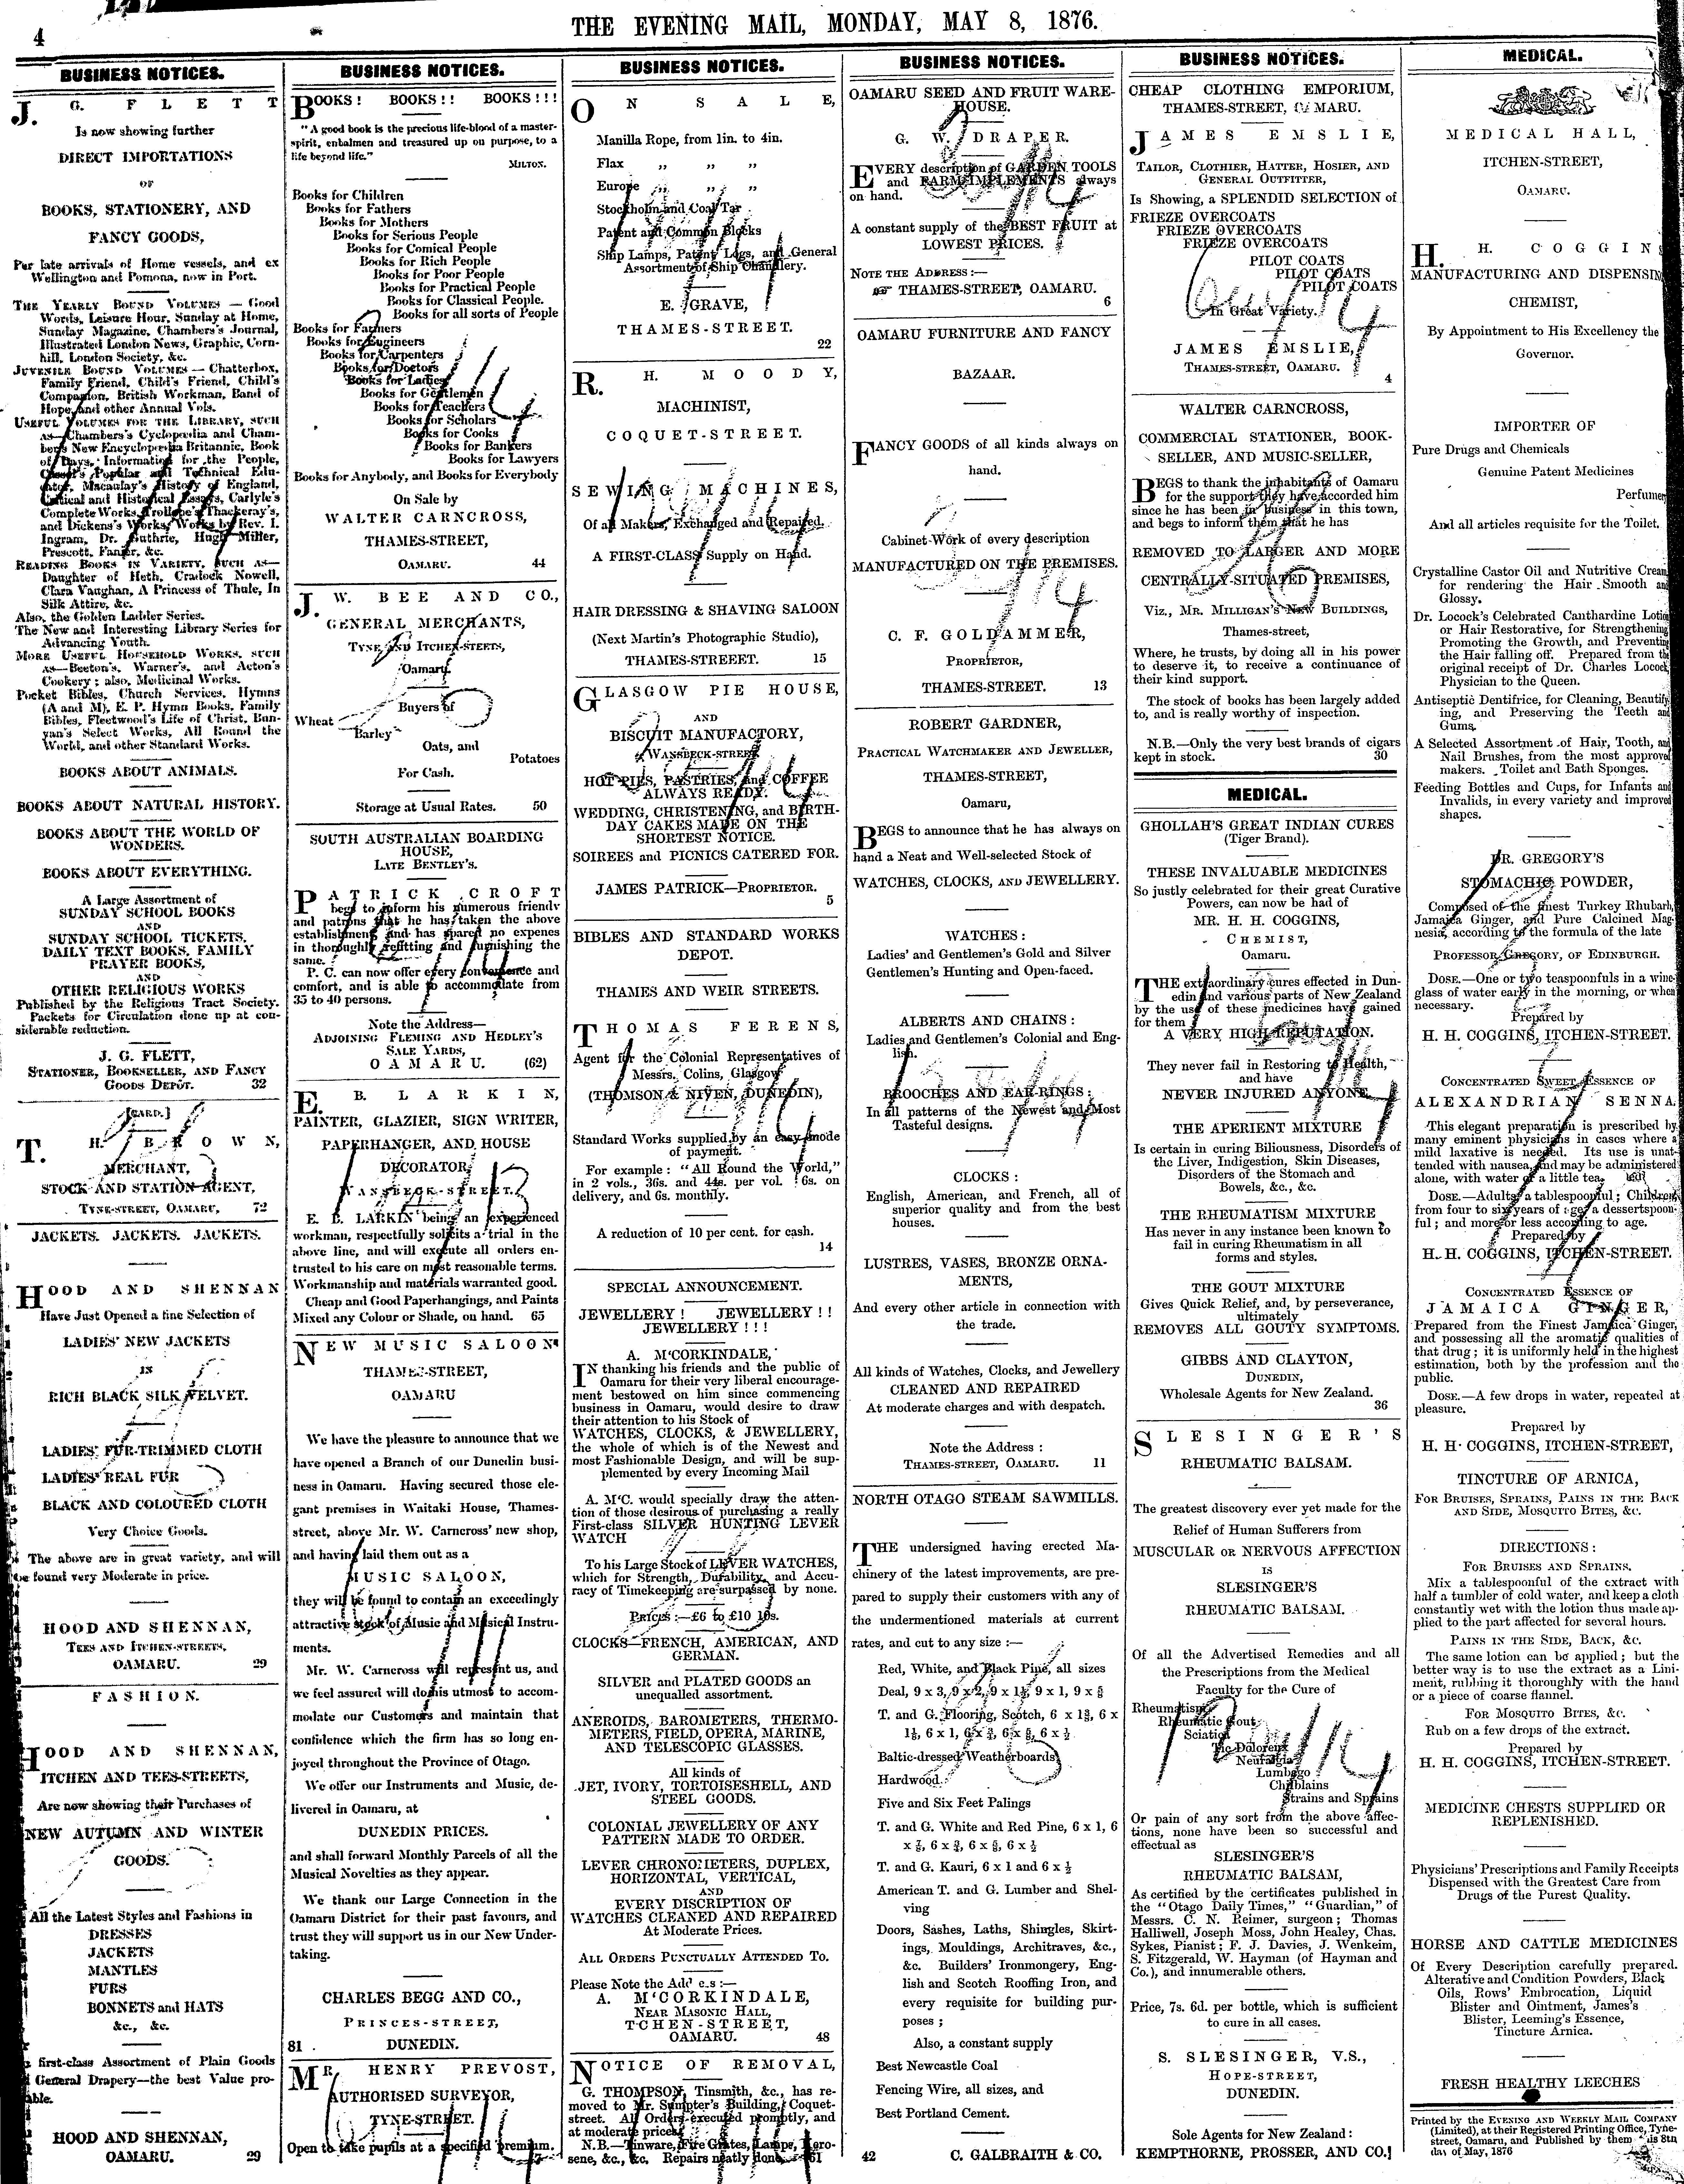 4
THE EVENING MAIL, MONDAY, MAY 8, 1876.
BUSINESS NOTICES.
J. G. FLETT
Is now showing further
DIRECT IMPORTATIONS
OF
BOOKS, STATIONERY, AND
FANCY GOODS,
Per late arrivals of Home vessels, and ex
Wellington and Pomona, now in Port.
THE YEARLY BOUND VOLUMES — Good
Words, Leisure Hour, Sunday at Home,
Sunday Magazine, Chambers's Journal,
Illustrated London News, Graphic, Corn-
hill, London Society, &c.
JUVENILE BOUND VOLUMES — Chatterbox,
Family Friend, Child's Friend, Child's
Companion, British Workman, Band of
Hope, and other Annual Vols.
USEFUL VOLUMES FOR THE LIBRARY, SUCH
AS—Chambers's Cyclopædia and Cham-
bers's New Encyclopædia Britannic, Book
of Days, Information for the People,
Cassell's Popular and Technical Edu-
cator, Macaulay's History of England,
Critical and Historical Essays, Carlyle's
Complete Works, Trollope's Thackeray's,
and Dickens's Works, Works by Rev. I.
Ingram, Dr. Guthrie, Hugh Miller,
Prescott, Farrar, &c.
READING BOOKS IN VARIETY, SUCH AS—
Daughter of Heth, Cradock Nowell,
Clara Vaughan, A Princess of Thule, In
Silk Attire, &c.
Also, the Golden Ladder Series.
The New and Interesting Library Series for
Advancing Youth.
MORE USEFUL HOUSEHOLD WORKS, SUCH
AS—Beeton's, Warner's, and Acton's
Cookery; also, Medicinal Works.
Pocket Bibles, Church Services, Hymns
(A and M), E. P. Hymn Books, Family
Bibles, Fleetwood's Life of Christ, Bun-
yan's Select Works, All Round the
World, and other Standard Works.
BOOKS ABOUT ANIMALS.
BOOKS ABOUT NATURAL HISTORY.
BOOKS ABOUT THE WORLD OF
WONDERS.
BOOKS ABOUT EVERYTHING.
A Large Assortment of
SUNDAY SCHOOL BOOKS
AND
SUNDAY SCHOOL TICKETS,
DAILY TEXT BOOKS, FAMILY
PRAYER BOOKS,
AND
OTHER RELIGIOUS WORKS
Published by the Religious Tract Society.
Packets for Circulation done up at con-
siderable reduction.
J. G. FLETT,
STATIONER, BOOKSELLER, AND FANCY
GOODS DEPOT. 32
[CARD.]
T. H. BROWN,
MERCHANT,
STOCK AND STATION AGENT,
TYNE-STREET, OAMARU, 72
JACKETS. JACKETS. JACKETS.
HOOD AND SHENNAN
Have Just Opened a fine Selection of
LADIES' NEW JACKETS
IN
RICH BLACK SILK VELVET.
LADIES' FUR-TRIMMED CLOTH
LADIES' REAL FUR
BLACK AND COLOURED CLOTH
Very Choice Goods.
The above are in great variety, and will
be found very Moderate in price.
HOOD AND SHENNAN,
TEES AND ITCHEN-STREETS,
OAMARU. 29
FASHION.
HOOD AND SHENNAN,
ITCHEN AND TEES-STREETS,
Are now showing their Purchases of
NEW AUTUMN AND WINTER
GOODS.
All the Latest Styles and Fashions in
DRESSES
JACKETS
MANTLES
FURS
BONNETS and HATS
&c., &c.
first-class Assortment of Plain Goods
General Drapery—the best Value pro-
able.
HOOD AND SHENNAN,
OAMARU. 29
BUSINESS NOTICES.
BOOKS! BOOKS!! BOOKS!!!
"A good book is the precious life-blood of a master-
spirit, enbalmen and treasured up on purpose, to a
life beyond life."
MILTON.
Books for Children
Books for Fathers
Books for Mothers
Books for Serious People
Books for Comical People
Books for Rich People
Books for Poor People
Books for Practical People
Books for Classical People.
Books for all sorts of People
Books for Farmers
Books for Engineers
Books for Carpenters
Books for Doctors
Books for Ladies
Books for Gentlemen
Books for Teachers
Books for Scholars
Books for Cooks
Books for Bankers
Books for Lawyers
Books for Anybody, and Books for Everybody
On Sale by
WALTER CARNCROSS,
THAMES-STREET,
OAMARU. 44
J. W. BEE AND CO.,
GENERAL MERCHANTS,
TYNE AND ITCHEN-STEETS,
Oamaru.
Buyers of
Wheat
Barley
Oats, and
Potatoes
For Cash.
Storage at Usual Rates. 50
SOUTH AUSTRALIAN BOARDING
HOUSE,
LATE BENTLEY'S.
PATRICK CROFT
begs to inform his numerous friendv
and patrons that he has taken the above
establishment, and has spared no expenes
in thoroughly refitting and furnishing the
same.
P. C. can now offer every convenience and
comfort, and is able to accommodate from
35 to 40 persons.
Note the Address—
ADJOINING FLEMING AND HEDLEY'S
SALE YARDS,
OAMARU. (62)
E. B. LARKIN,
PAINTER, GLAZIER, SIGN WRITER,
PAPERHANGER, AND HOUSE
DECORATOR,
WANSBECK-STREET.
E. B. LARKIN being an experienced
workman, respectfully solicits a trial in the
above line, and will execute all orders en-
trusted to his care on most reasonable terms.
Workmanship and materials warranted good.
Cheap and Good Paperhangings, and Paints
Mixed any Colour or Shade, on hand. 65
NEW MUSIC SALOON
THAMES-STREET,
OAMARU
We have the pleasure to announce that we
have opened a Branch of our Dunedin busi-
ness in Oamaru. Having secured those ele-
gant premises in Waitaki House, Thames-
street, above Mr. W. Carncross' new shop,
and having laid them out as a
MUSIC SALOON,
they will be found to contain an exceedingly
attractive stock of Music and Musical Instru-
ments.
Mr. W. Carncross will represent us, and
we feel assured will do his utmost to accom-
modate our Customers and maintain that
confidence which the firm has so long en-
joyed throughout the Province of Otago.
We offer our Instruments and Music, de-
livered in Oamaru, at
DUNEDIN PRICES.
and shall forward Monthly Parcels of all the
Musical Novelties as they appear.
We thank our Large Connection in the
Oamaru District for their past favours, and
trust they will support us in our New Under-
taking.
CHARLES BEGG AND CO.,
PRINCES-STREET,
81 . DUNEDIN.
MR. HENRY PREVOST,
AUTHORISED SURVEYOR,
TYNE-STREET.
Open to take pupils at a specified premium.
BUSINESS NOTICES.
ON SALE,
Manilla Rope, from 1in. to 4in.
Flax ,, ,, ,,
Europe ,, ,, ,,
Stockholm and Coal Tar
Patent and Common Blocks
Ship Lamps, Patent Logs, and General
Assortment of Ship Chandlery.
E. GRAVE,
THAMES-STREET.
22
R. H. MOODY,
MACHINIST,
COQUET-STREET.
SEWING MACHINES,
Of all Makers, Exchanged and Repaired.
A FIRST-CLASS Supply on Hand.
HAIR DRESSING & SHAVING SALOON
(Next Martin's Photographic Studio),
THAMES-STREEET. 15
GLASGOW PIE HOUSE,
AND
BISCUIT MANUFACTORY,
WANSBECK-STREET
HOT PIES, PASTRIES, and COFFEE
ALWAYS READY.
WEDDING, CHRISTENING, and BIRTH-
DAY CAKES MADE ON THE
SHORTEST NOTICE.
SOIREES and PICNICS CATERED FOR.
JAMES PATRICK—PROPRIETOR.
5
BIBLES AND STANDARD WORKS
DEPOT.
THAMES AND WEIR STREETS.
THOMAS FERENS,
Agent for the Colonial Representatives of
Messrs. Colins, Glasgow
(THOMSON & NIVEN, DUNEDIN),
Standard Works supplied by an easy mode
of payment.
For example: "All Round the World,"
in 2 vols., 36s. and 44s. per vol. 6s. on
delivery, and 6s. monthly.
A reduction of 10 per cent. for cash.
14
SPECIAL ANNOUNCEMENT.
JEWELLERY! JEWELLERY!!
JEWELLERY!!!
A. M'CORKINDALE,
IN thanking his friends and the public of
Oamaru for their very liberal encourage-
ment bestowed on him since commencing
business in Oamaru, would desire to draw
their attention to his Stock of
WATCHES, CLOCKS, & JEWELLERY,
the whole of which is of the Newest and
most Fashionable Design, and will be sup-
plemented by every Incoming Mail
A. M'C. would specially draw the atten-
tion of those desirous of purchasing a really
First-class SILVER HUNTING LEVER
WATCH
To his Large Stock of LEVER WATCHES,
which for Strength, Durability, and Accu-
racy of Timekeeping are surpassed by none.
PRICES:—£6 to £10 10s.
CLOCKS—FRENCH, AMERICAN, AND
GERMAN.
SILVER and PLATED GOODS an
unequalled assortment.
ANEROIDS, BAROMETERS, THERMO-
METERS, FIELD, OPERA, MARINE,
AND TELESCOPIC GLASSES.
All kinds of
JET, IVORY, TORTOISESHELL, AND
STEEL GOODS.
COLONIAL JEWELLERY OF ANY
PATTERN MADE TO ORDER.
LEVER CHRONOMETERS, DUPLEX,
HORIZONTAL, VERTICAL,
AND
EVERY DISCRIPTION OF
WATCHES CLEANED AND REPAIRED
At Moderate Prices.
ALL ORDERS PUNCTUALLY ATTENDED TO.
Please Note the Add e.s:—
A. M'CORKINDALE,
NEAR MASONIC HALL,
TCHEN-STREET,
OAMARU. 48
NOTICE OF REMOVAL,
G. THOMPSON, Tinsmith, &c., has re-
moved to Mr. Sumpter's Building, Coquet-
street. All Orders executed promptly, and
at moderate prices.
N.B.—Tinware, Fire Grates, Lamps, Kero-
sene, &c., &c. Repairs neatly done. 61
BUSINESS NOTICES.
OAMARU SEED AND FRUIT WARE-
HOUSE.
G. W. DRAPER.
EVERY description of GARDEN TOOLS
and FARM IMPLEMENTS always
on hand.
A constant supply of the BEST FRUIT at
LOWEST PRICES.
NOTE THE ADDRESS:—
☞ THAMES-STREET, OAMARU.
6
OAMARU FURNITURE AND FANCY
BAZAAR.
FANCY GOODS of all kinds always on
hand.
Cabinet Work of every description
MANUFACTURED ON THE PREMISES.
C. F. GOLDAMMER,
PROPRIETOR,
THAMES-STREET. 13
ROBERT GARDNER,
PRACTICAL WATCHMAKER AND JEWELLER,
THAMES-STREET,
Oamaru,
BEGS to announce that he has always on
hand a Neat and Well-selected Stock of
WATCHES, CLOCKS, AND JEWELLERY.
WATCHES:
Ladies' and Gentlemen's Gold and Silver
Gentlemen's Hunting and Open-faced.
ALBERTS AND CHAINS:
Ladies and Gentlemen's Colonial and Eng-
lish.
BROOCHES AND EAR-RINGS:
In all patterns of the Newest and Most
Tasteful designs.
CLOCKS:
English, American, and French, all of
superior quality and from the best
houses.
LUSTRES, VASES, BRONZE ORNA-
MENTS,
And every other article in connection with
the trade.
All kinds of Watches, Clocks, and Jewellery
CLEANED AND REPAIRED
At moderate charges and with despatch.
Note the Address:
THAMES-STREET, OAMARU. 11
NORTH OTAGO STEAM SAWMILLS.
THE undersigned having erected Ma-
chinery of the latest improvements, are pre-
pared to supply their customers with any of
the undermentioned materials at current
rates, and cut to any size:—
Red, White, and Black Pine, all sizes
Deal, 9 x 3, 9 x 2, 9 x 1½, 9 x 1, 9 x ⅝
T. and G. Flooring, Scotch, 6 x 1⅜, 6 x
1⅛, 6 x 1, 6 x ¾, 6 x ⅝, 6 x ½
Baltic-dressed Weatherboards
Hardwood
Five and Six Feet Palings
T. and G. White and Red Pine, 6 x 1, 6
x ⅞, 6 x ¾, 6 x ⅝, 6 x ½
T. and G. Kauri, 6 x 1 and 6 x ½
American T. and G. Lumber and Shel-
ving
Doors, Sashes, Laths, Shingles, Skirt-
ings, Mouldings, Architraves, &c.,
&c. Builders' Ironmongery, Eng-
lish and Scotch Rooffing Iron, and
every requisite for building pur-
poses;
Also, a constant supply
Best Newcastle Coal
Fencing Wire, all sizes, and
Best Portland Cement.
42 C. GALBRAITH & CO.
BUSINESS NOTICES.
CHEAP CLOTHING EMPORIUM,
THAMES-STREET, OAMARU.
JAMES EMSLIE,
TAILOR, CLOTHIER, HATTER, HOSIER, AND
GENERAL OUTFITTER,
Is Showing, a SPLENDID SELECTION of
FRIEZE OVERCOATS
FRIEZE OVERCOATS
FRIEZE OVERCOATS
PILOT COATS
PILOT COATS
PILOT COATS
In Great Variety.
JAMES EMSLIE,
THAMES-STREET, OAMARU.
4
WALTER CARNCROSS,
COMMERCIAL STATIONER, BOOK-
SELLER, AND MUSIC-SELLER,
BEGS to thank the inhabitants of Oamaru
for the support they have accorded him
since he has been in business in this town,
and begs to inform them that he has
REMOVED TO LARGER AND MORE
CENTRALLY-SITUATED PREMISES,
Viz., MR. MILLIGAN'S NEW BUILDINGS,
Thames-street,
Where, he trusts, by doing all in his power
to deserve it, to receive a continuance of
their kind support.
The stock of books has been largely added
to, and is really worthy of inspection.
N.B.—Only the very best brands of cigars
kept in stock. 30
MEDICAL.
GHOLLAH'S GREAT INDIAN CURES
(Tiger Brand).
THESE INVALUABLE MEDICINES
So justly celebrated for their great Curative
Powers, can now be had of
MR. H. H. COGGINS,
CHEMIST,
Oamaru.
THE extraordinary cures effected in Dun-
edin and various parts of New Zealand
by the use of these medicines have gained
for them
A VERY HIGH REPUTATION.
They never fail in Restoring to Health,
and have
NEVER INJURED ANYONE.
THE APERIENT MIXTURE
Is certain in curing Biliousness, Disorders of
the Liver, Indigestion, Skin Diseases,
Disorders of the Stomach and
Bowels, &c., &c.
THE RHEUMATISM MIXTURE
Has never in any instance been known to
fail in curing Rheumatism in all
forms and styles.
THE GOUT MIXTURE
Gives Quick Relief, and, by perseverance,
ultimately
REMOVES ALL GOUTY SYMPTOMS.
GIBBS AND CLAYTON,
DUNEDIN,
Wholesale Agents for New Zealand.
36
SLESINGER'S
RHEUMATIC BALSAM.
The greatest discovery ever yet made for the
Relief of Human Sufferers from
MUSCULAR OR NERVOUS AFFECTION
IS
SLESINGER'S
RHEUMATIC BALSAM.
Of all the Advertised Remedies and all
the Prescriptions from the Medical
Faculty for the Cure of
Rheumatism
Rheumatic Gout
Sciatica
Tic-Doloreux
Neuralgia
Lumbago
Chilblains
Strains and Sprains
Or pain of any sort from the above affec-
tions, none have been so successful and
effectual as
SLESINGER'S
RHEUMATIC BALSAM,
As certified by the certificates published in
the "Otago Daily Times," "Guardian," of
Messrs. C. N. Reimer, surgeon; Thomas
Halliwell, Joseph Moss, John Healey, Chas.
Sykes, Pianist; F. J. Davies, J. Wenkeim,
S. Fitzgerald, W. Hayman (of Hayman and
Co.), and innumerable others.
Price, 7s. 6d. per bottle, which is sufficient
to cure in all cases.
S. SLESINGER, V.S.,
HOPE-STREET,
DUNEDIN.
Sole Agents for New Zealand:
KEMPTHORNE, PROSSER, AND CO.]
MEDICAL.
MEDICAL HALL,
ITCHEN-STREET,
OAMARU.
H. H. COGGIN
MANUFACTURING AND DISPENSIN
CHEMIST,
By Appointment to His Excellency the
Governor.
IMPORTER OF
Pure Drugs and Chemicals
Genuine Patent Medicines
Perfumer
And all articles requisite for the Toilet.
Crystalline Castor Oil and Nutritive Cream
for rendering the Hair Smooth and
Glossy.
Dr. Locock's Celebrated Canthardine Lotion
or Hair Restorative, for Strengthening
Promoting the Growth, and Preventing
the Hair falling off. Prepared from the
original receipt of Dr. Charles Locock,
Physician to the Queen.
Antiseptic Dentifrice, for Cleaning, Beautify-
ing, and Preserving the Teeth and
Gums.
A Selected Assortment of Hair, Tooth, and
Nail Brushes, from the most approved
makers. Toilet and Bath Sponges.
Feeding Bottles and Cups, for Infants and
Invalids, in every variety and improved
shapes.
DR. GREGORY'S
STOMACHIC POWDER,
Composed of the finest Turkey Rhubarb,
Jamaica Ginger, and Pure Calcined Mag-
nesia, according to the formula of the late
PROFESSOR GREGORY, OF EDINBURGH.
DOSE.—One or two teaspoonfuls in a wine-
glass of water early in the morning, or when
necessary.
Prepared by
H. H. COGGINS, ITCHEN-STREET.
CONCENTRATED SWEET ESSENCE OF
ALEXANDRIAN SENNA
This elegant preparation is prescribed by
many eminent physicians in cases where a
mild laxative is needed. Its use is unat-
tended with nausea, and may be administered
alone, with water or a little tea.
DOSE.—Adults, a tablespoonful; Children,
from four to six years of age, a dessertspoon-
ful; and more or less according to age.
Prepared by
H. H. COGGINS, ITCHEN-STREET.
CONCENTRATED ESSENCE OF
JAMAICA GINGER,
Prepared from the Finest Jamaica Ginger,
and possessing all the aromatic qualities of
that drug; it is uniformly held in the highest
estimation, both by the profession and the
public.
DOSE.—A few drops in water, repeated at
pleasure.
Prepared by
H. H. COGGINS, ITCHEN-STREET,
TINCTURE OF ARNICA,
FOR BRUISES, SPRAINS, PAINS IN THE BACK
AND SIDE, MOSQUITO BITES, &c.
DIRECTIONS:
FOR BRUISES AND SPRAINS.
Mix a tablespoonful of the extract with
half a tumbler of cold water, and keep a cloth
constantly wet with the lotion thus made ap-
plied to the part affected for several hours.
PAINS IN THE SIDE, BACK, &c.
The same lotion can be applied; but the
better way is to use the extract as a Lini-
ment, rubbing it thoroughly with the hand
or a piece of coarse flannel.
FOR MOSQUITO BITES, &c.
Rub on a few drops of the extract.
Prepared by
H. H. COGGINS, ITCHEN-STREET.
MEDICINE CHESTS SUPPLIED OR
REPLENISHED.
Physicians' Prescriptions and Family Receipts
Dispensed with the Greatest Care from
Drugs of the Purest Quality.
HORSE AND CATTLE MEDICINES
Of Every Description carefully prepared.
Alterative and Condition Powders, Black
Oils, Rows' Embrocation, Liquid
Blister and Ointment, James's
Blister, Leeming's Essence,
Tincture Arnica.
FRESH HEALTHY LEECHES
Printed by the EVENING AND WEEKLY MAIL COMPANY
(Limited), at their Registered Printing Office, Tyne-
street, Oamaru, and Published by them this 8th
day of May, 1876